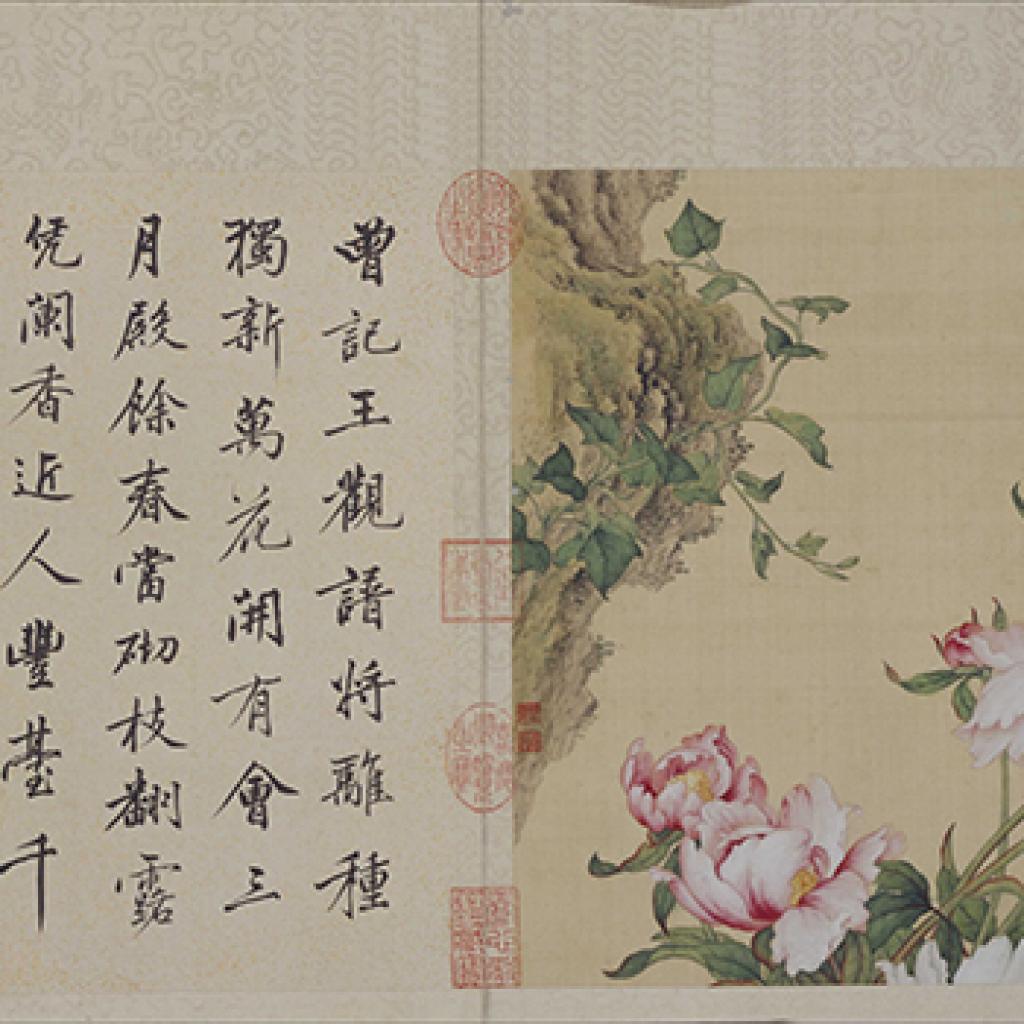 曽記王觀譜將離種
獨新萬花開有會三
月殿餘春當砌枝翻露
凭闌香近人豐薹千